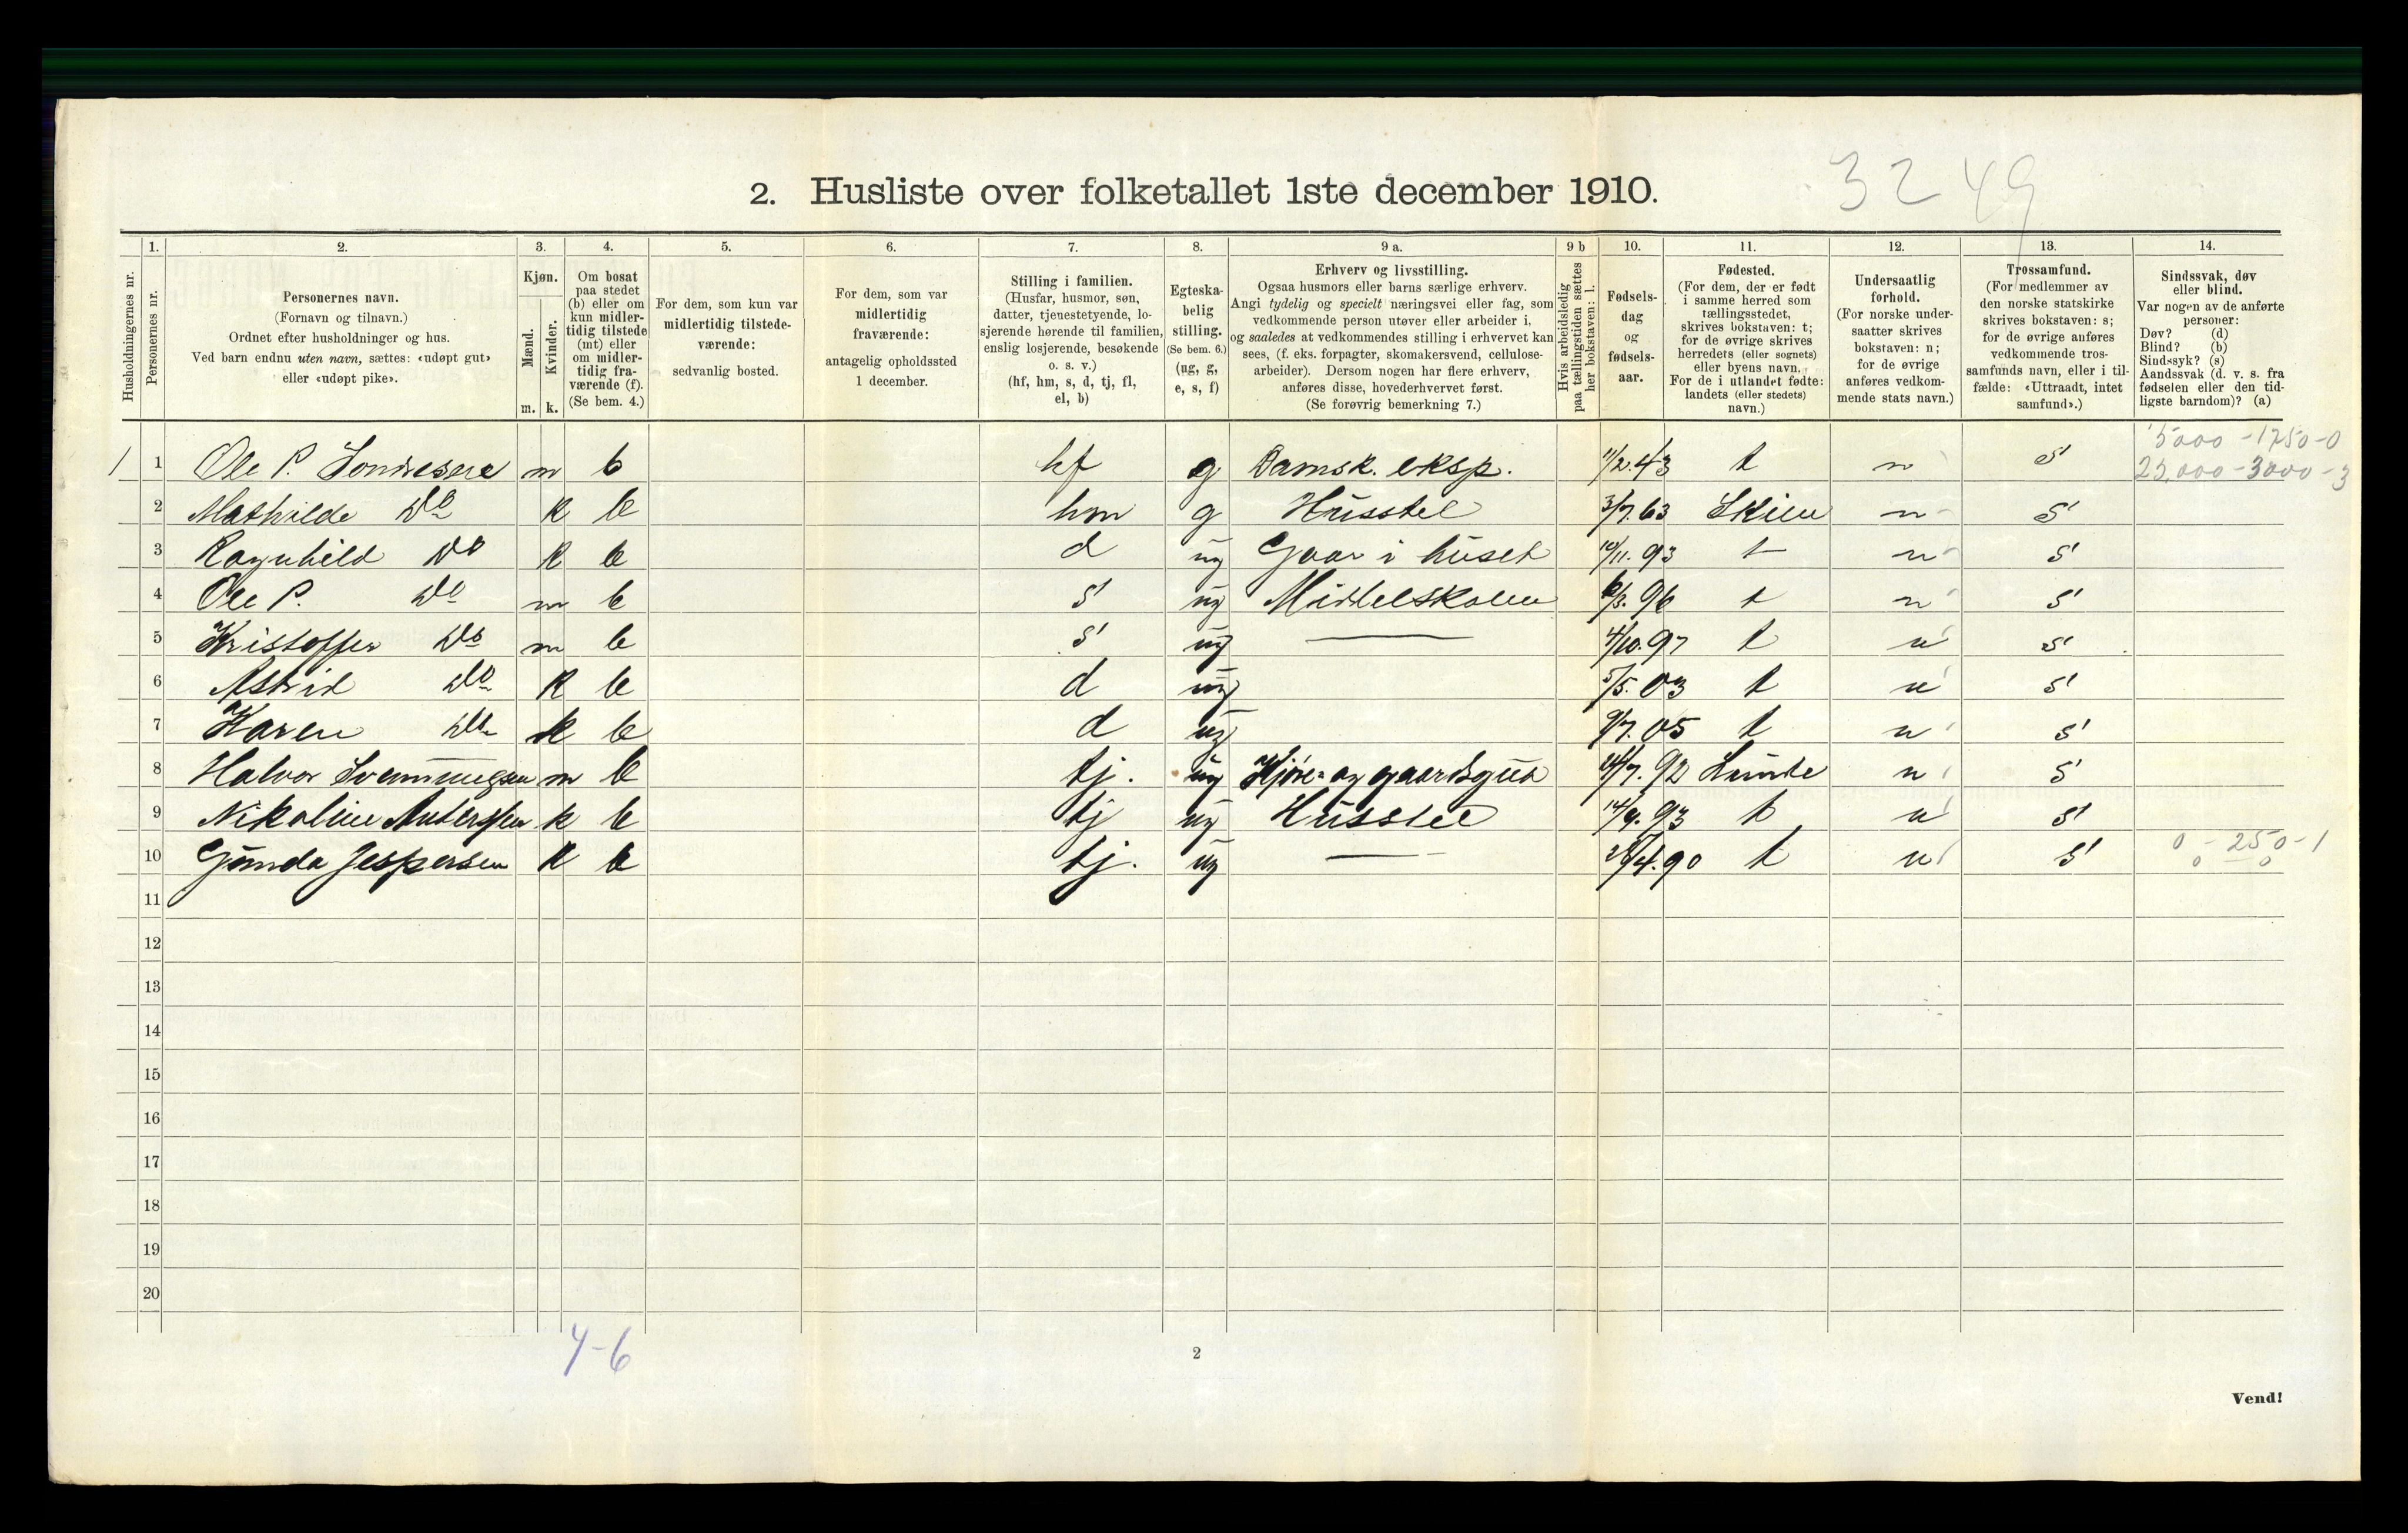 3249
2. Husliste over folketallet 1ste december 1910.
Husholdningernes nr.
1.
Personernes nr.
2.
Personernes navn.
(Fornavn og tilnavn.)
Ordnet efter husholdninger og hus.
Ved barn endnu uten navn, sættes: «udøpt gut»
eller «udøpt pike».
3.
Kjøn.
Mænd.
Kvinder.
m. k.
4.
Om bosat
paa stedet
(b) eller om
kun midler-
tidig tilstede
(mt) eller
om midler-
tidig fra-
værende (f).
(Se bem. 4.)
5.
For dem, som kun var
midlertidig tilstede-
værende:
sedvanlig bosted.
6.
For dem, som var
midlertidig
fraværende:
antagelig opholdssted
1 december.
7.
Stilling i familien.
(Husfar, husmor, søn,
datter, tjenestetyende, lo-
sjerende hørende til familien,
enslig losjerende, besøkende
o. s. v.)
(hf, hm, s, d, tj, fl,
el, b)
8.
Egteska-
belig
stilling.
(Se bem. 6.)
(ug, g,
e, s, f)
9 a.
Erhverv og livsstilling.
Ogsaa husmors eller barns særlige erhverv.
Angi tydelig og specielt næringsvei eller fag, som
vedkommende person utøver eller arbeider i,
og saaledes at vedkommendes stilling i erhvervet kan
sees, (f. eks. forpagter, skomakersvend, cellulose-
arbeider). Dersom nogen har flere erhverv,
anføres disse, hovederhvervet først.
(Se forøvrig bemerkning 7.)
9 b
Hvis arbeidsledig
paa tællingstiden sættes
her bokstaven: l.
10.
Fødsels-
dag
og
fødsels-
aar.
11.
Fødested.
(For dem, der er født
i samme herred som
tællingsstedet,
skrives bokstaven: t;
for de øvrige skrives
herredets (eller sognets)
eller byens navn.
For de i utlandet fødte:
landets (eller stedets)
navn.)
12.
Undersaatlig
forhold.
(For norske under-
saatter skrives
bokstaven: n;
for de øvrige
anføres vedkom-
mende stats navn.)
13.
Trossamfund.
(For medlemmer av
den norske statskirke
skrives bokstaven: s;
for de øvrige anføres
vedkommende tros-
samfunds navn, eller i til-
fælde: «Uttraadt, intet
samfund».)
14.
Sindssvak, døv
eller blind.
Var nogen av de anførte
personer:
Døv? (d)
Blind? (b)
Sindssyk? (s)
Aandssvak (d. v. s. fra
fødselen eller den tid-
ligste barndom)? (a)
5000 - 1750 - 0
1 1 Ole P. m b hf g Damsk. eksp. 11/2.43 t n s 25,000 - 3000 - 3
2 Mathilde do k b hm g Husstel 3/7.63 Skien n s
3 Ragnhild do k b d ug Gaar i huset 10/11.93 t n s
4 Ole P. do m b s ug Middelskolen 6/3.96 t n s
5 Kristoffer do m b s ug — 4/10.97 t n s
6 Astrid do k b d ug 5/5.03 t n s
7 Karen do k b d ug 9/7.05 t n s
8 Halvor Svennungsen m b tj. ug Kjøre- og gaardsgut 24/7.92 Lunde n s
9 Nikoline Anderssen k b tj ug Husstel 14/9.93 t n s
0 - 250 - 1
10 Gunda Jespersen k b tj. ug — 4.90 t n s 0 - 0
11
12
13
14
15
16
17
18
19
20
4-6
2
Vend!